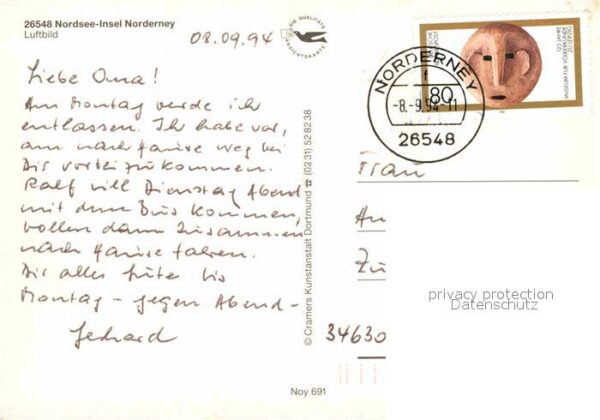 26548 Nordsee-Insel Norderney
Luftbild
08.09.94
DIE QUALITÄTS
ANSICHTSKARTE
Liebe Oma!
Am Montag werde ich
entlassen. Ihr habe vor,
am nach Hause weg bei
Dir vorbeizukommen.
Ralf will Dienstag Abend
mit dem Bus kommen,
wollen dann zusammen
nach Hause fahren.
Dir alles Gute bis
Montag - gegen Abend -
Gerhard
© Cramers Kunstanstalt Dortmund ☎ (0231) 52 82 38
Noy 691
80
MUSEUM FÜR VÖLKERKUNDE
125 JAHRE
NORDERNEY
f
-8.-9.94-11
26548
Frau
An
Zu
34630
privacy protection
Datenschutz